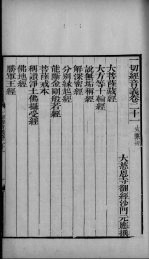 一切經音義卷二十一
大慈恩寺翻經沙門元應撰
大菩薩藏經
大方等十輪經
說無垢稱經
解深密經
分別緣起經
能斷金剛般若經
菩薩戒本
稱讚淨土佛攝受經
佛地經
勝軍王經